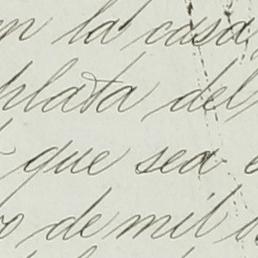 en la casa
plata del
que sea e
o de mil o